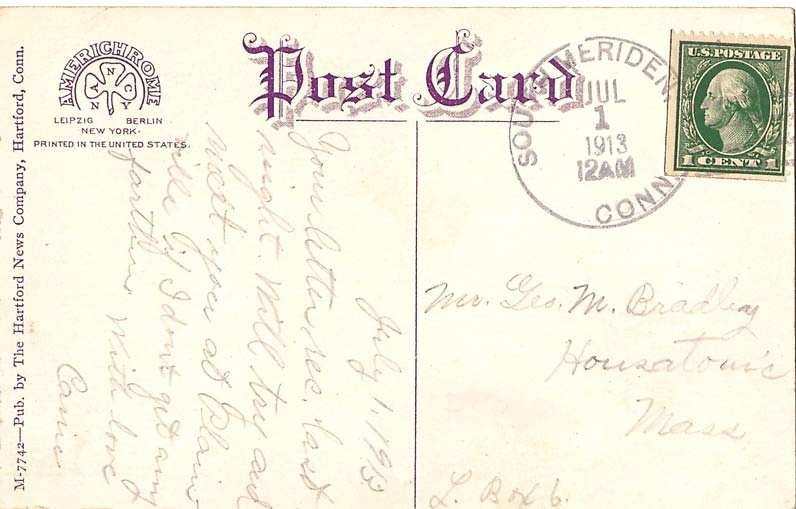 M-7742—Pub. by The Hartford News Company, Hartford, Conn.
AMERICHROME
ANCY
LEIPZIG BERLIN
NEW YORK-
PRINTED IN THE UNITED STATES.
Post Card
SOUTH MERIDEN
JUL
1
1913
12AM
CONN.
U.S. POSTAGE
1 CENT 1
July 1, 1913
Your letter rec. last
night. Will try and
meet you at Plain-
ville if I don't get any
farther. With love
Carrie
Mr. Geo. M. Bradley
Housatonic
Mass
L. Box 6.